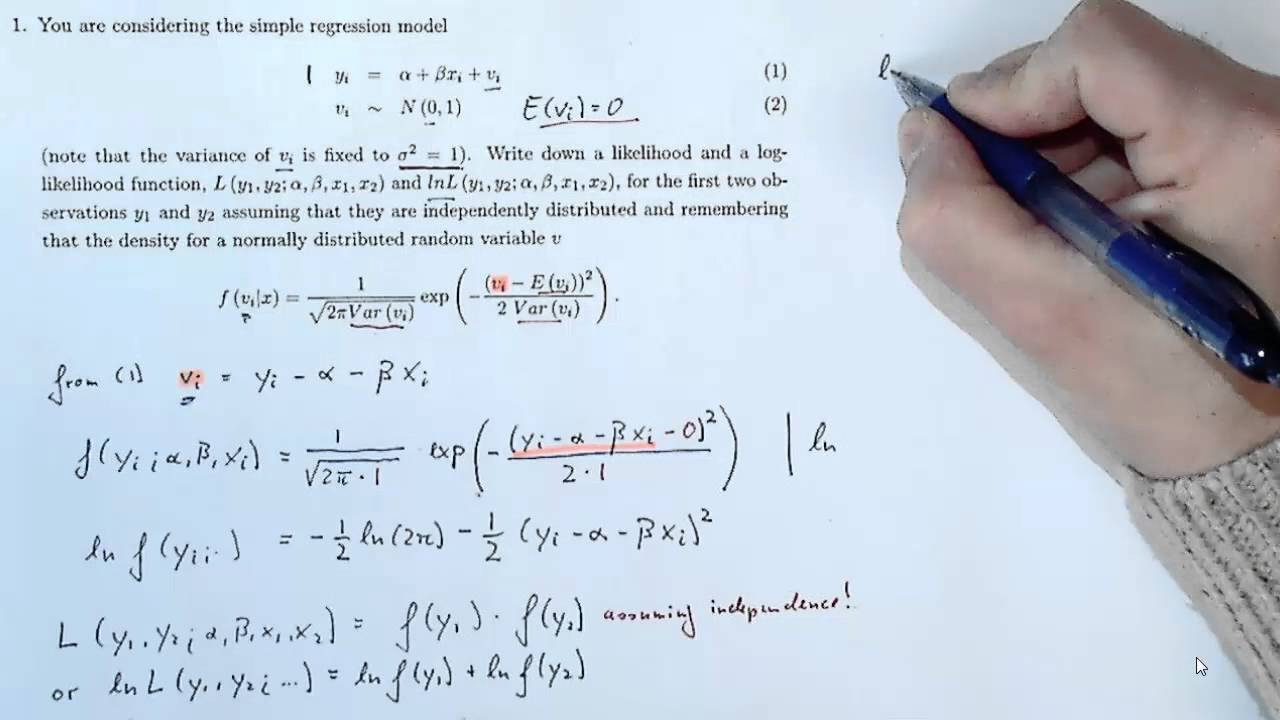 1. You are considering the simple regression model
| yᵢ = α + βxᵢ + vᵢ (1)
vᵢ ~ N (0, 1) E(vᵢ) = 0 (2)
(note that the variance of vᵢ is fixed to σ² = 1). Write down a likelihood and a log-
likelihood function, L (y₁, y₂; α, β, x₁, x₂) and lnL (y₁, y₂; α, β, x₁, x₂), for the first two ob-
servations y₁ and y₂ assuming that they are independently distributed and remembering
that the density for a normally distributed random variable v
f (vᵢ|x) = 1/√(2πVar (vᵢ)) exp (−(vᵢ − E (vᵢ))²/(2 Var (vᵢ))).
from (1) vᵢ = yᵢ - α - β xᵢ
f(yᵢ; α, β, xᵢ) = 1/√(2π · 1) exp(-(yᵢ - α - β xᵢ - 0)²/(2 · 1)) | ln
ln f(yᵢ; ·) = -1/2 ln(2π) - 1/2 (yᵢ - α - β xᵢ)²
L (y₁, y₂; α, β, x₁, x₂) = f(y₁) · f(y₂) assuming independence!
or ln L (y₁, y₂; ...) = ln f(y₁) + ln f(y₂)
l